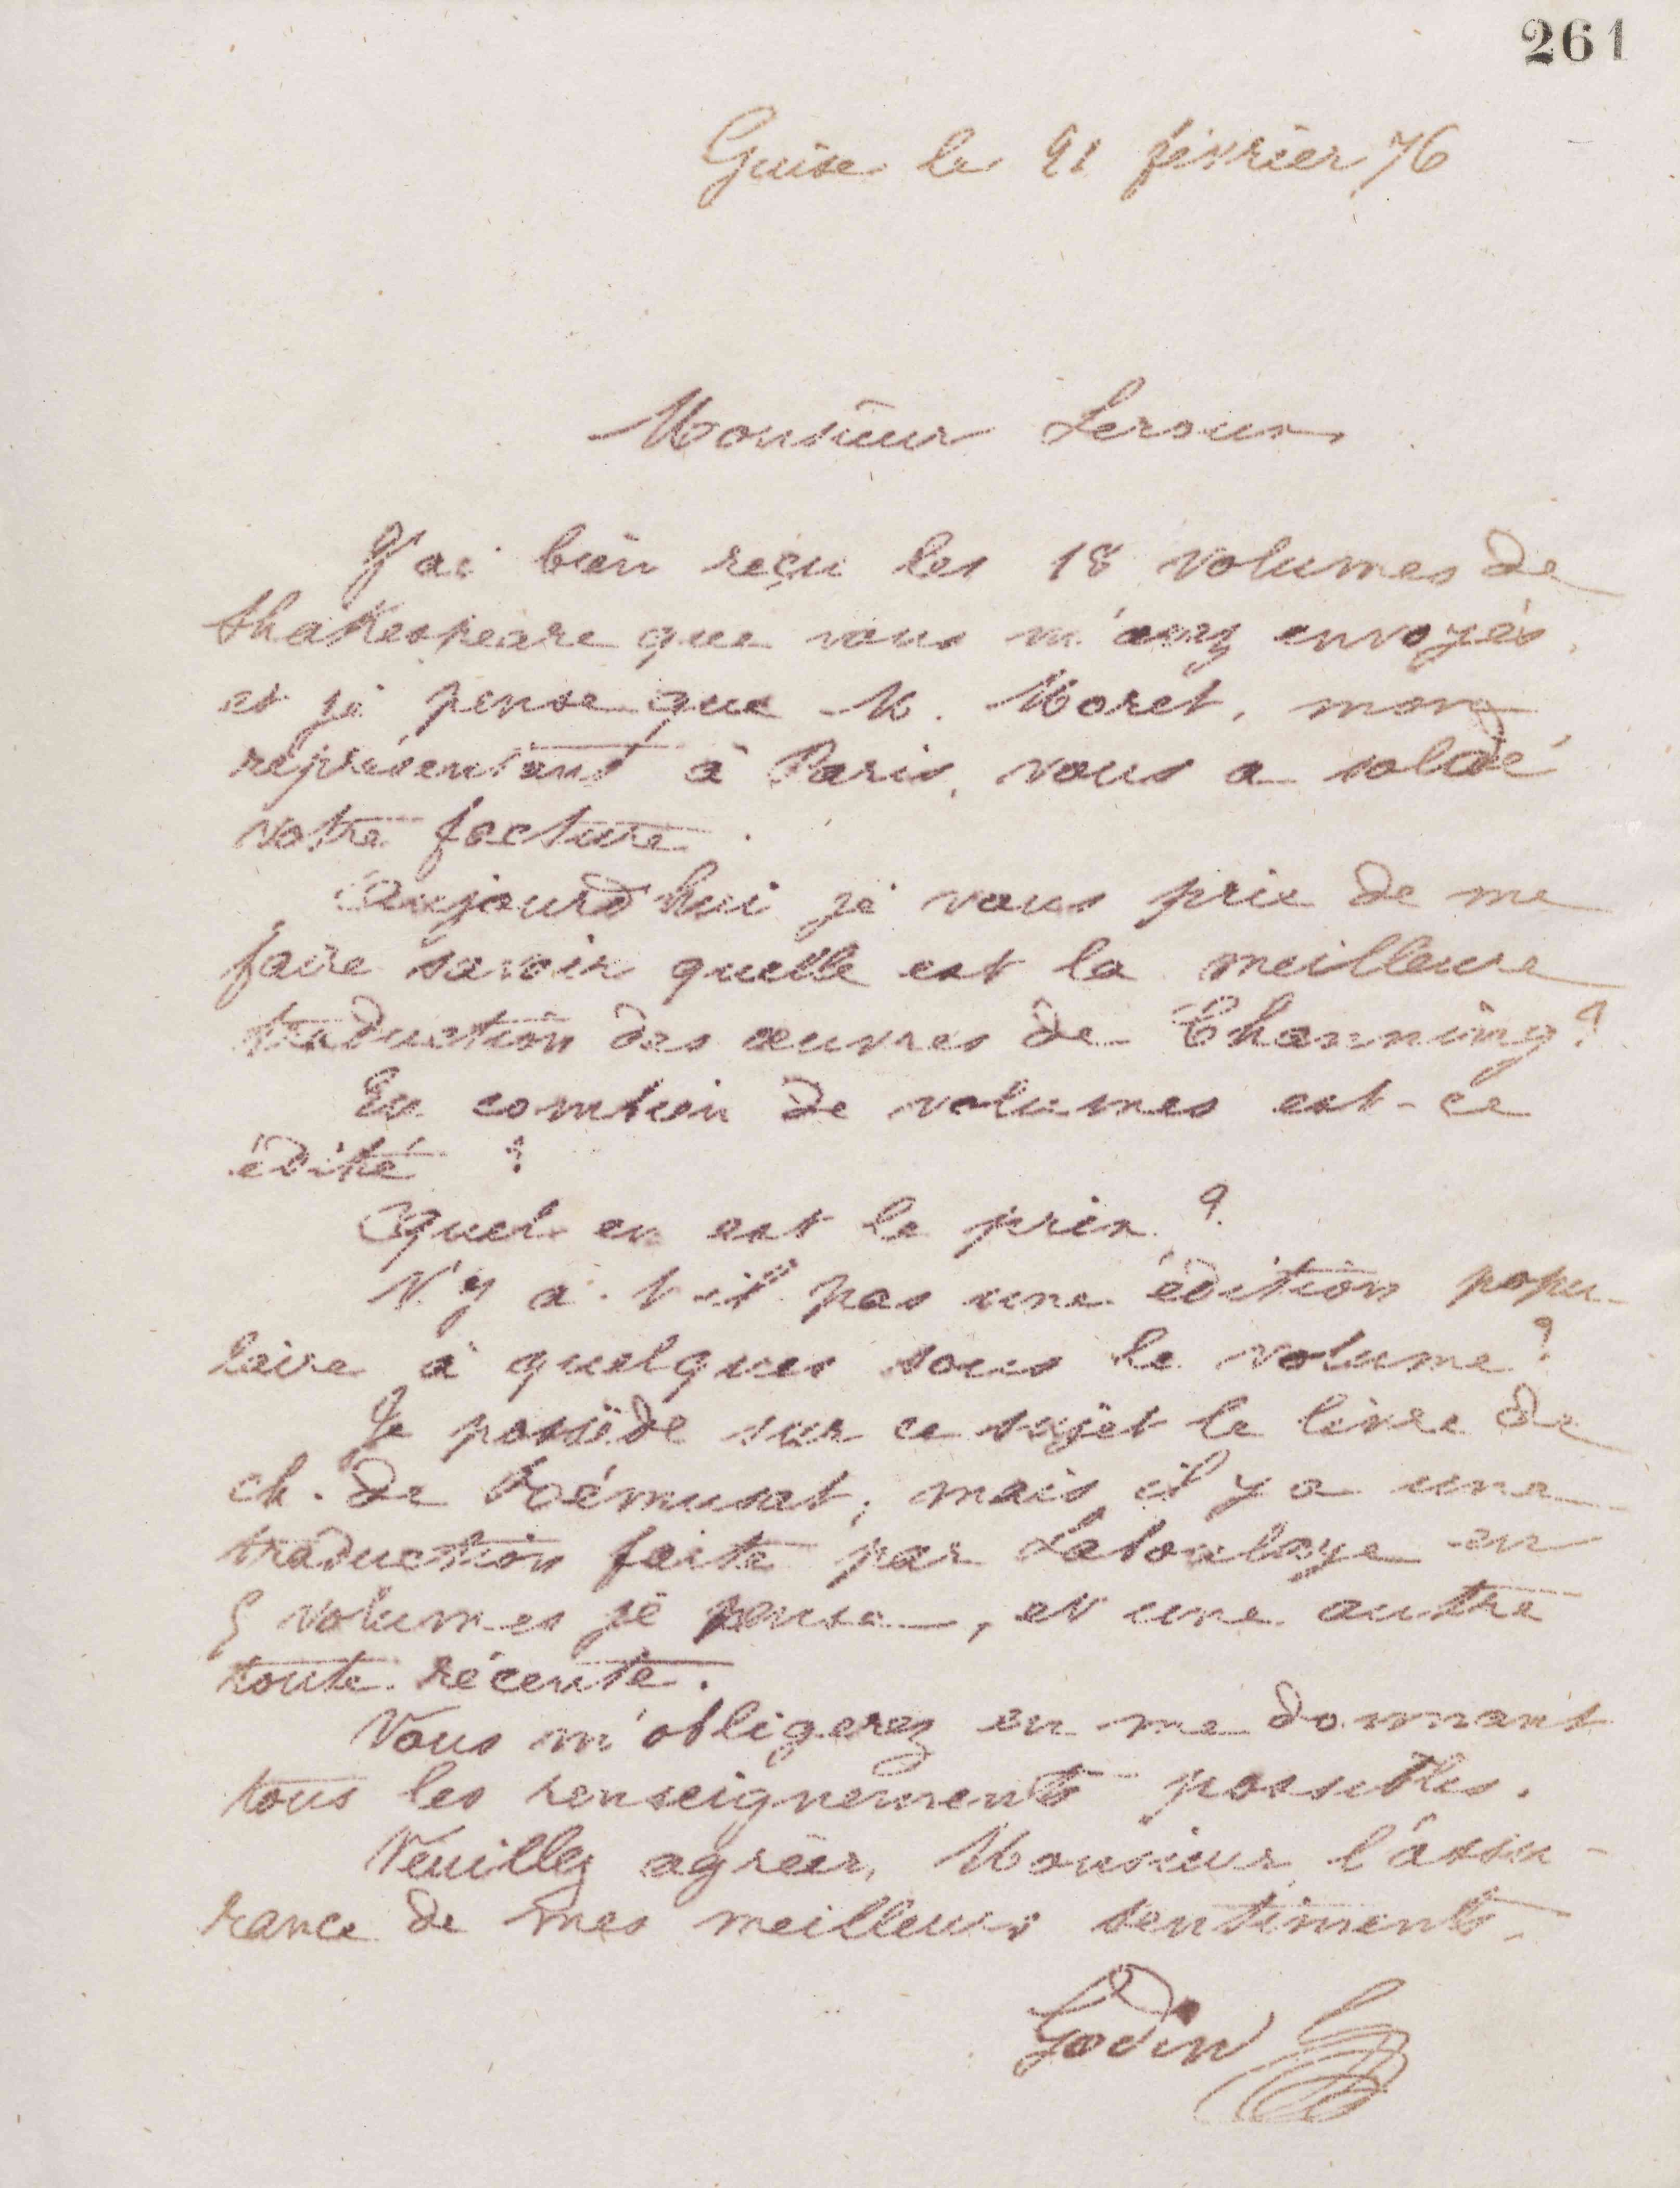 261
Guise le 21 février 76
Monsieur Leroux
J'ai bien reçu les 18 volumes de
Shakespeare que vous m'avez envoyés,
et je pense que M. Moret, mon
représentant à Paris, vous a soldé
votre facture.
Aujourd'hui je vous prie de me
faire savoir quelle est la meilleure
traduction des œuvres de Channing?
En combien de volumes est-ce
édité ?
Quel en est le prix ?
N'y a-t-il pas une édition popu-
laire à quelques sous le volume ?
Je possède sur ce sujet le livre de
ch. de Rémusat, mais il y a une
traduction faite par Laboulaye en
5 volumes je pense, et une autre
toute récente.
Vous m'obligerez en me donnant
tous les renseignements possibles.
Veuillez agréer, Monsieur, l'assu-
rance de mes meilleurs sentiments.
Godin